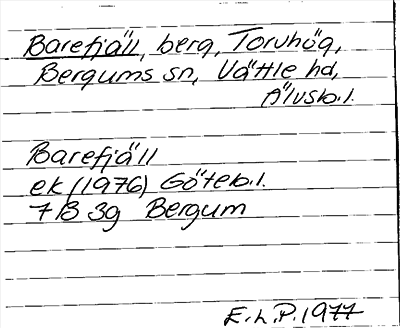 Barefjäll, berg, Toruhög,
Bergums sn, Vättle hd,
Älvsb.l.
Barefjäll
ek (1976) Göteb.l.
7 B 3g Bergum
E.L.P. 1977